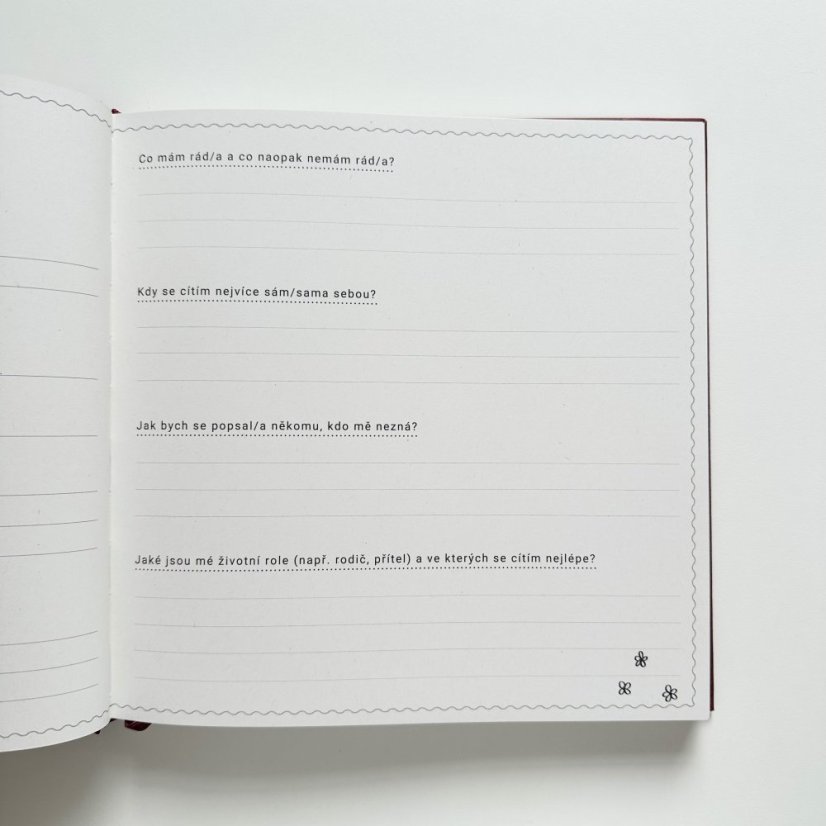 Co mám rád/a a co naopak nemám rád/a?
Kdy se cítím nejvíce sám/sama sebou?
Jak bych se popsal/a někomu, kdo mě nezná?
Jaké jsou mé životní role (např. rodič, přítel) a ve kterých se cítím nejlépe?